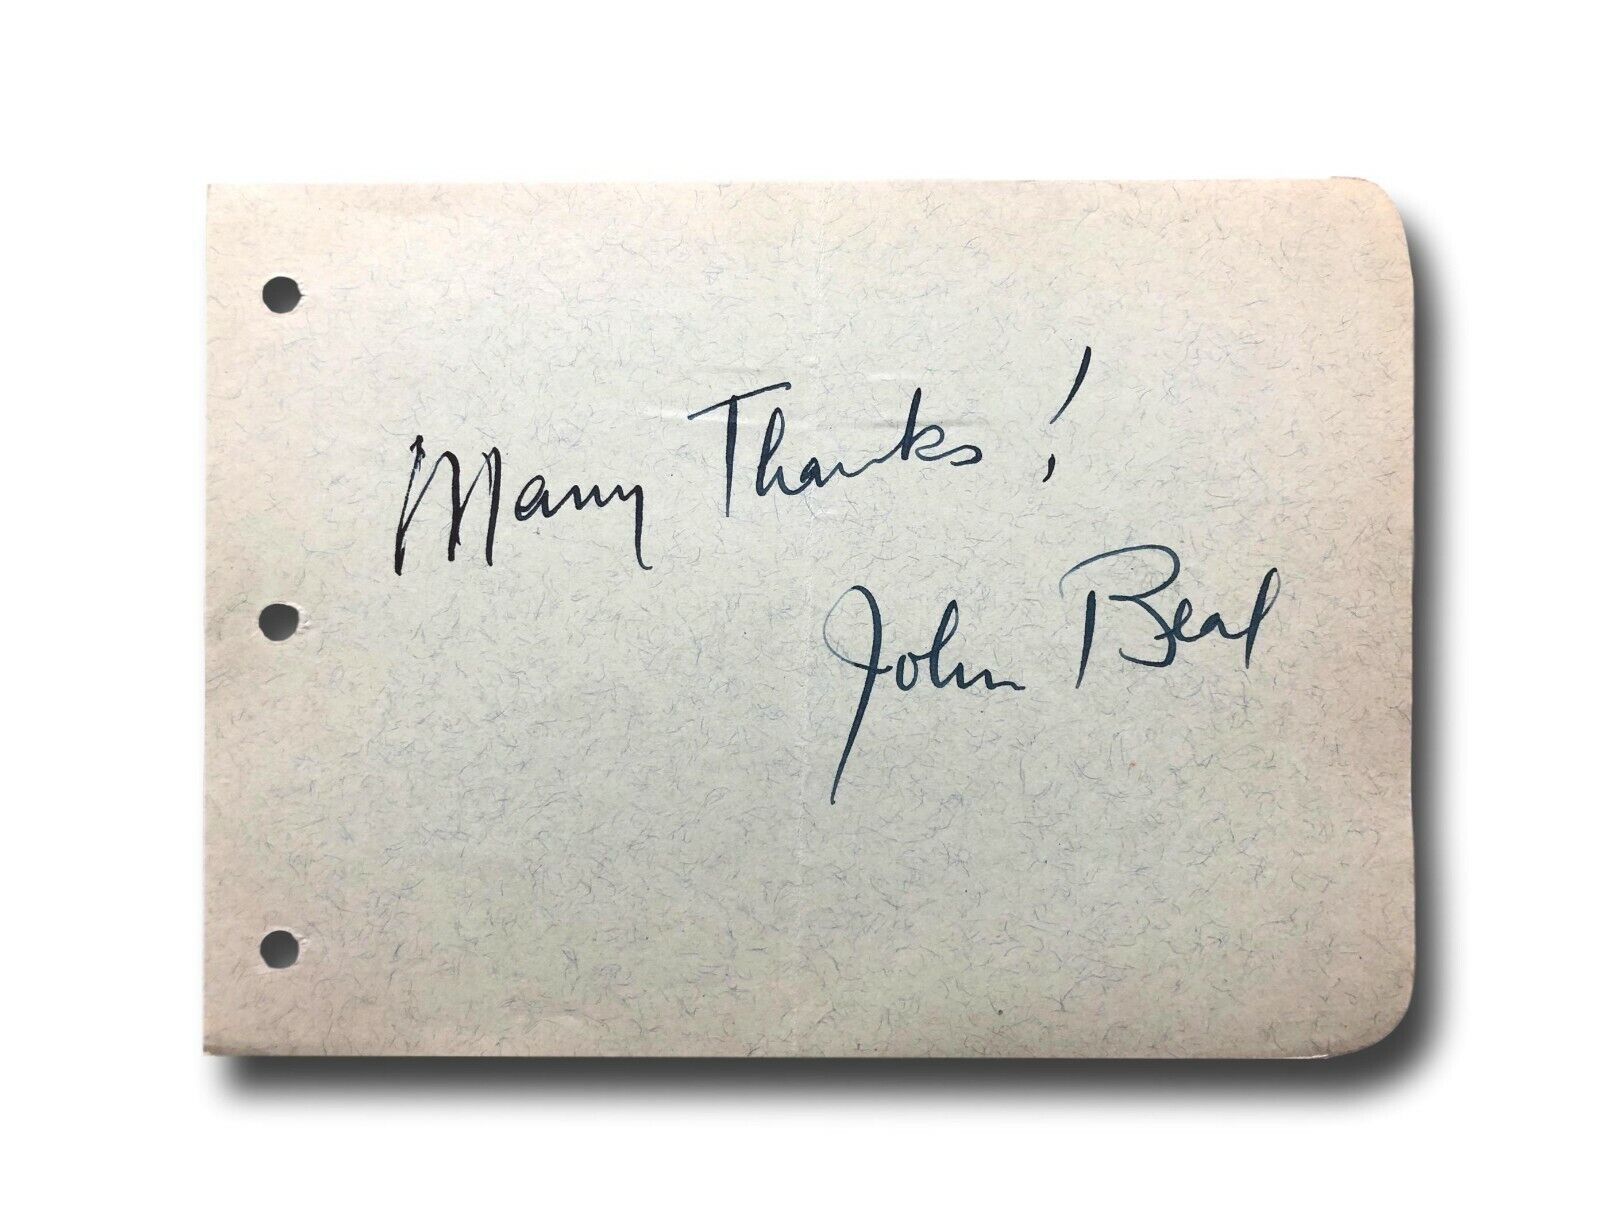 Many Thanks!
John Beal